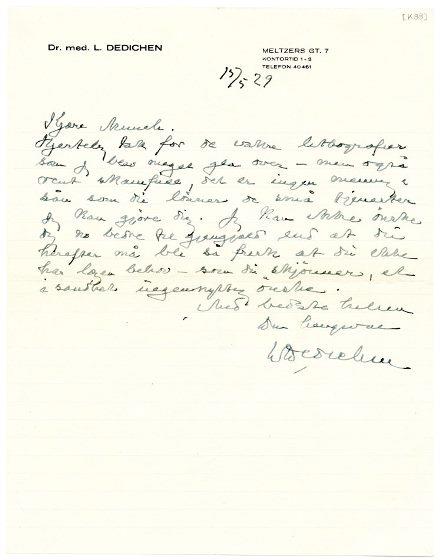 [K88]
Dr. med. L. DEDICHEN
MELTZERS GT. 7
KONTORTID 1-3
TELEFON 40461
15/5 29
Kjære Munch.
Hjertelig tak for de vakre lithografier
som jeg blev meget glad over – men også
rent skamfuld, det er ingen mening i
sån som du lönner de små tjenester
jeg kan gjöre dig. Jeg kan ikke önske
dig no bedre til gjengjæld end at du
herefter må bli så frisk at du ikke
har læge behov – som du skjönner, et
i sandhet uegennyttig önske.
Med bedste hilsen
Din hengivne
LDedichen